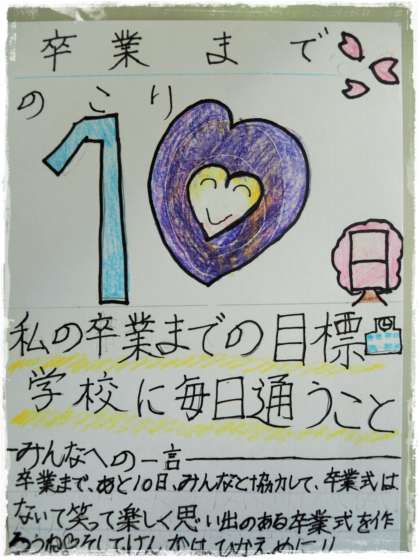 卒業まで
のこり
10日
私の卒業までの目標
学校に毎日通うこと
みんなへの一言
卒業まで、あと10日、みんなと協力して、卒業式は
ないて笑って楽しく思い出のある卒業式を作
ろうね♡そしてけんかは、ひかえめに!!